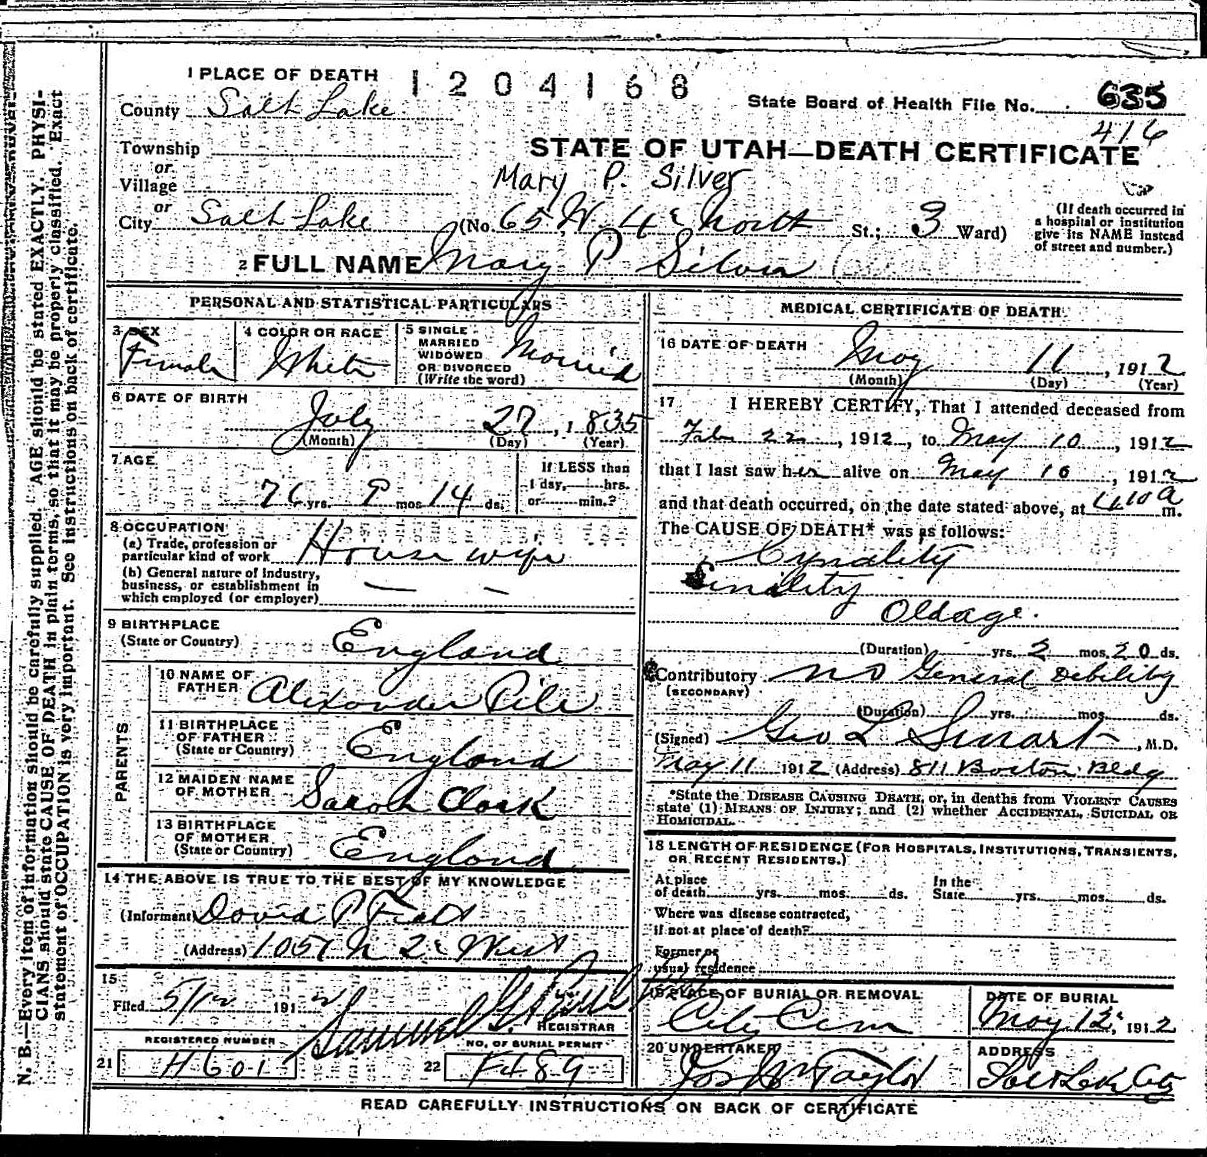 N. B.—Every item of information should be carefully supplied. AGE should be stated EXACTLY. PHYSI-
CIANS should state CAUSE OF DEATH in plain terms, so that it may be properly classified. Exact
statement of OCCUPATION is very important. See instructions on back of certificate.
1 PLACE OF DEATH
1204168
County Salt Lake
State Board of Health File No. 635
416
Township
or
Village
or
City Salt Lake
STATE OF UTAH—DEATH CERTIFICATE
Mary P. Silver
(No. 65 W 4 North St.; 3 Ward)
(If death occurred in
a hospital or institution
give its NAME instead
of street and number.)
2 FULL NAME Mary P Silver
PERSONAL AND STATISTICAL PARTICULARS
3 SEX
Female
4 COLOR OR RACE
White
5 SINGLE
MARRIED
WIDOWED
OR DIVORCED
(Write the word)
Married
6 DATE OF BIRTH
July 27, 1835
(Month) (Day) (Year)
7 AGE
76 yrs. 9 mos 14 ds.
If LESS than
1 day, hrs.
or min.?
8 OCCUPATION
(a) Trade, profession or
particular kind of work House wife
(b) General nature of industry,
business, or establishment in
which employed (or employer)
9 BIRTHPLACE
(State or Country) England
PARENTS
10 NAME OF
FATHER Alexander Pile
11 BIRTHPLACE
OF FATHER
(State or Country) England
12 MAIDEN NAME
OF MOTHER Sarah Clark
13 BIRTHPLACE
OF MOTHER
(State or Country) England
14 THE ABOVE IS TRUE TO THE BEST OF MY KNOWLEDGE
(Informant) David P
(Address) 1057 N 2 West
15
Filed 5/12 1912
Samuel G.
REGISTRAR
REGISTERED NUMBER
21 H601
NO. OF BURIAL PERMIT
22 F489
MEDICAL CERTIFICATE OF DEATH
16 DATE OF DEATH
May 11, 1912
(Month) (Day) (Year)
17 I HEREBY CERTIFY, That I attended deceased from
Feb 22, 1912, to May 10, 1912
that I last saw her alive on May 10, 1912
and that death occurred, on the date stated above, at 4.10 a m.
The CAUSE OF DEATH* was as follows:
Sinality
Oldage.
(Duration) yrs. 2 mos. 20 ds.
Contributory General Debility
(SECONDARY)
(Duration) yrs. mos. ds.
(Signed) Geo L Smart, M.D.
May 11 1912 (Address) 811 Boston Bldg
*State the DISEASE CAUSING DEATH, or, in deaths from VIOLENT CAUSES
state (1) MEANS OF INJURY; and (2) whether ACCIDENTAL, SUICIDAL OR
HOMICIDAL.
18 LENGTH OF RESIDENCE (FOR HOSPITALS, INSTITUTIONS, TRANSIENTS,
OR RECENT RESIDENTS.)
At place
of death yrs. mos. ds.
In the
State yrs. mos. ds.
Where was disease contracted,
if not at place of death?
Former or
usual residence
19 PLACE OF BURIAL OR REMOVAL
City Cem
DATE OF BURIAL
May 12, 1912
20 UNDERTAKER
Jos Wm Taylor
ADDRESS
Salt Lake City
READ CAREFULLY INSTRUCTIONS ON BACK OF CERTIFICATE